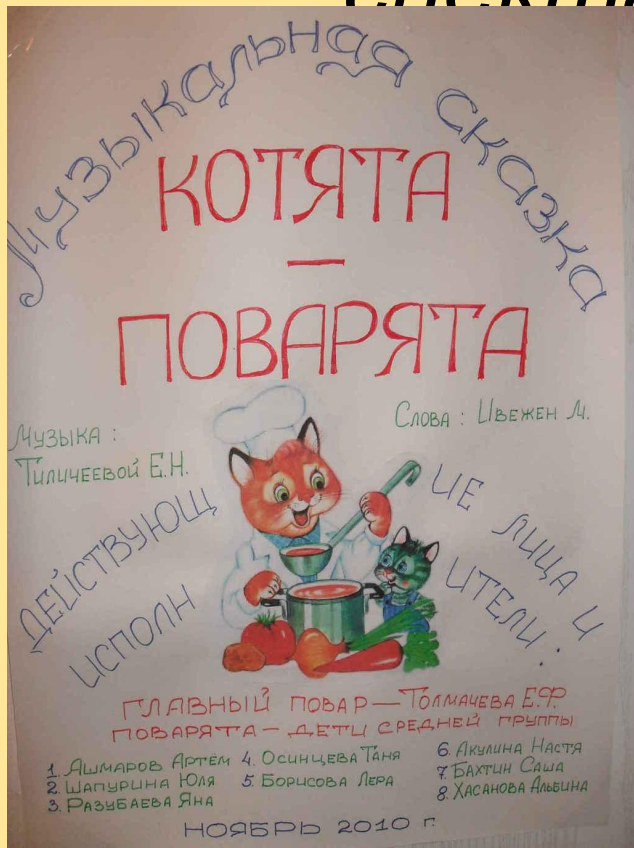 Музыкальная сказка
КОТЯТА
—
ПОВАРЯТА
Музыка :
Тиличеевой Е.Н.
Слова : Ивежен М.
ДЕЙСТВУЮЩИЕ ЛИЦА И
ИСПОЛНИТЕЛИ :
ГЛАВНЫЙ ПОВАР — Толмачева Е.Ф.
ПОВАРЯТА — ДЕТИ СРЕДНЕЙ ГРУППЫ
1. Ашмаров Артём
2. Шапурина Юля
3. Разубаева Яна
4. Осинцева Таня
5. Борисова Лера
6. Акулина Настя
7. Бахтин Саша
8. Хасанова Альбина
НОЯБРЬ 2010 г.